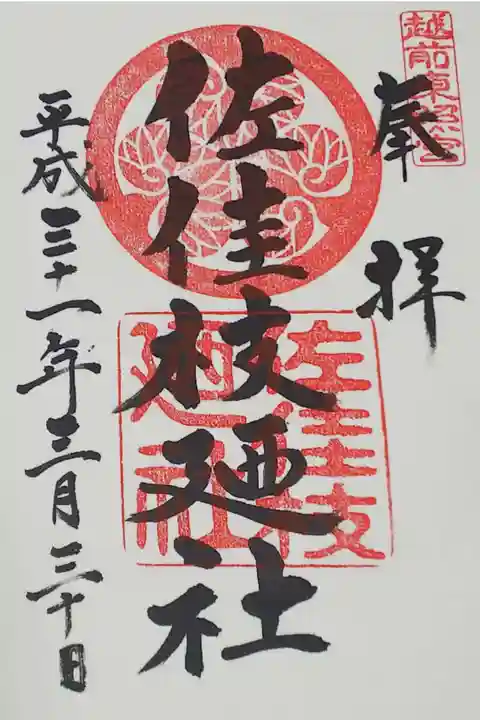 越前東照宮
奉拝
佐佳枝廼社
佐佳枝廼社
平成三十一年三月三十日